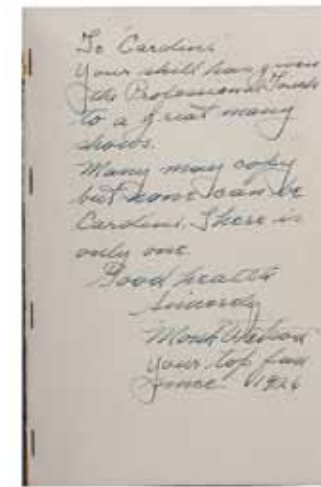 To "Cardini"
Your skill has given
the Professional Touch
to a great many
shows.
Many may copy
but none can be
Cardini. There is
only one.
Good health
Sincerely
Monk Watson
your top fan
since 1926